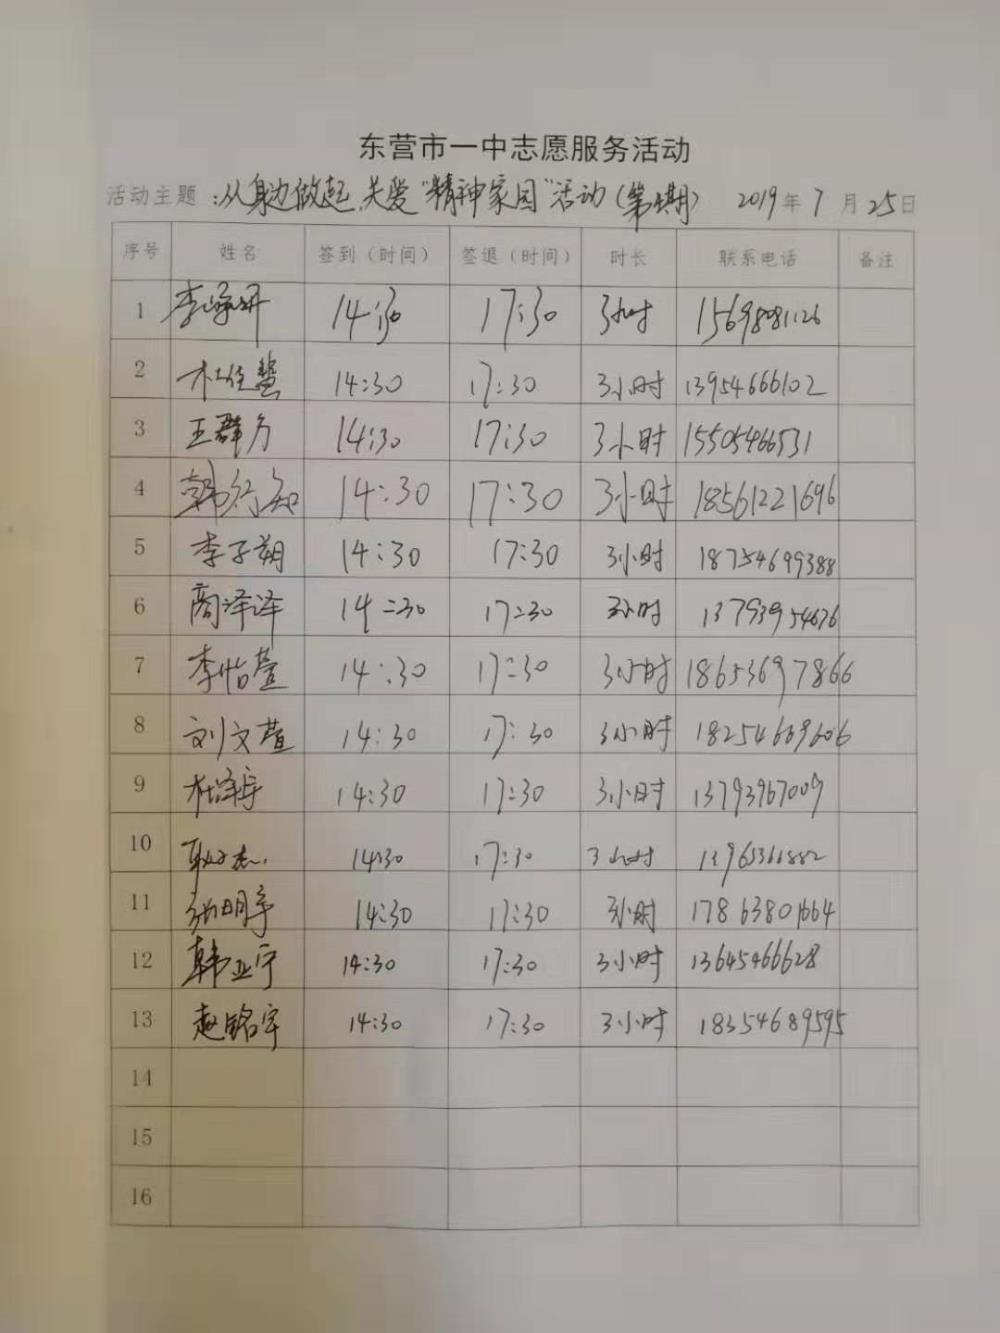 东营市一中志愿服务活动
活动主题：从身边做起,关爱“精神家园”活动(第 期) 2019年7月25日
序号 姓名 签到（时间） 签退（时间） 时长 联系电话 备注
1 14:30 17:30 3小时 15698081126
2 杜佳 14:30 17:30 3小时 13954666102
3 王群方 14:30 17:30 3小时 15505466531
4 韩行知 14:30 17:30 3小时 18561221696
5 李子朔 14:30 17:30 3小时 18754699388
6 商泽泽 14:30 17:30 3小时 13793954676
7 李怡萱 14:30 17:30 3小时 18653697866
8 刘文萱 14:30 17:30 3小时 18254669606
9 杜泽宇 14:30 17:30 3小时 13793967009
10 14:30 17:30 3小时
11 张明宇 14:30 17:30 3小时 17863801664
12 韩亚宁 14:30 17:30 3小时 13645466628
13 赵铭宇 14:30 17:30 3小时 18354689595
14
15
16